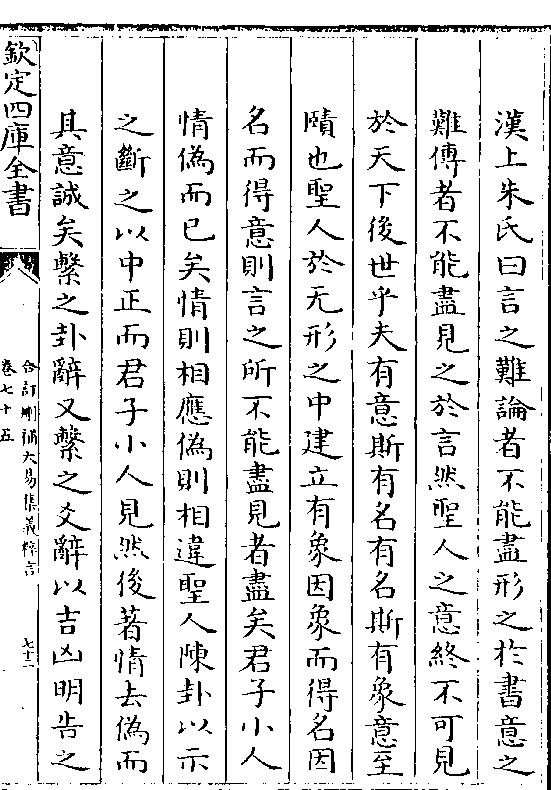 漢上朱氏曰言之難論者不能盡形之於書意之
難傳者不能盡見之於言然聖人之意終不可見
於天下後世乎夫有意斯有名有名斯有象意至
賾也聖人於无形之中建立有象因象而得名因
名而得意則言之所不能盡見者盡矣君子小人
情偽而已矣情則相應偽則相違聖人陳卦以示
之斷之以中正而君子小人見然後著情去偽而
其意誠矣繫之卦辭又繫之爻辭以吉凶明告之
欽定四庫全書
合訂刪補大易集義粹言
卷七十五